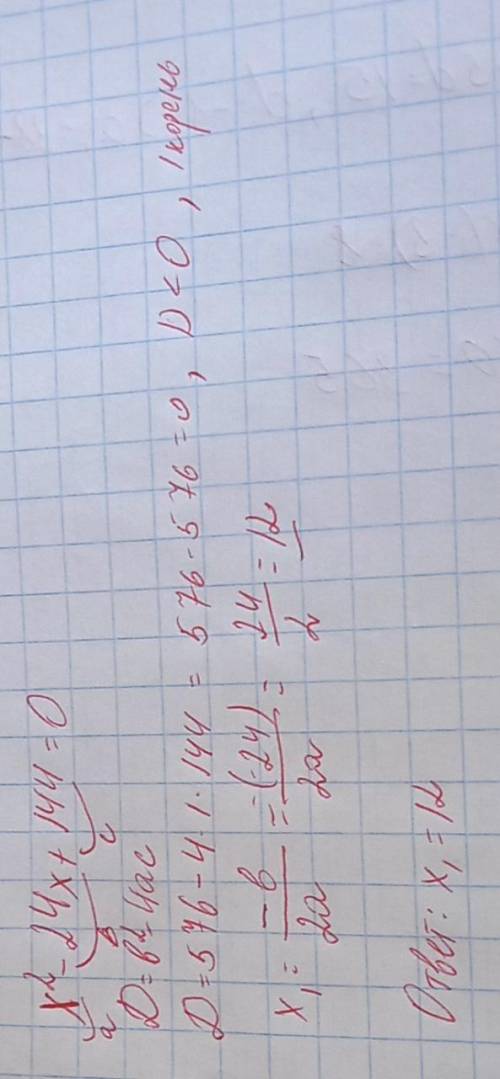 x² - 24x + 144 = 0
a в c
D = в² - 4ac
D = 576 - 4 · 1 · 144 = 576 - 576 = 0, D < 0, 1 корень
x₁ = -в/2a = -(-24)/2a = 24/2 = 12
Ответ: x₁ = 12